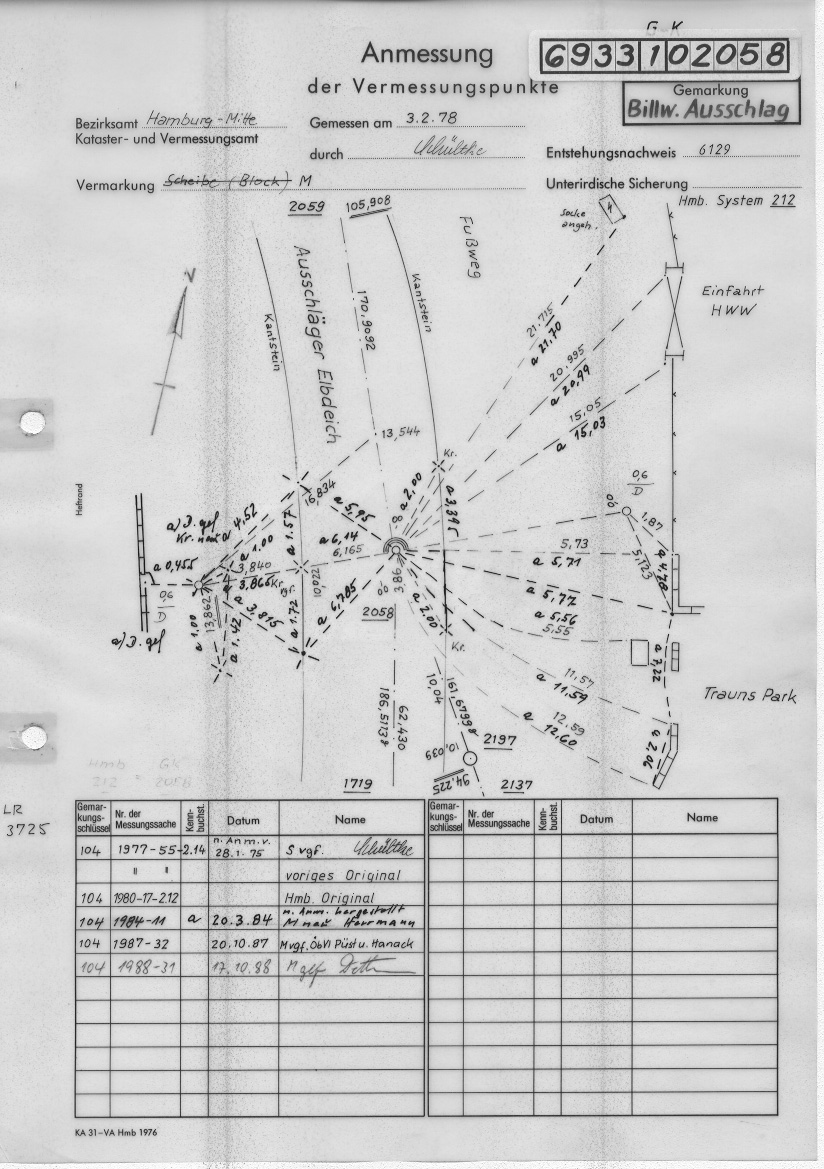 G-K
Anmessung
6933102058
der Vermessungspunkte
Gemarkung
Billw. Ausschlag
Bezirksamt Hamburg-Mitte
Kataster- und Vermessungsamt
Gemessen am 3.2.78
durch Schültke
Entstehungsnachweis 6129
Vermarkung Scheibe (Block) M
Unterirdische Sicherung
Hmb. System 212
2059
105,908
Fußweg
Socke
angeh.
N
Ausschläger Elbdeich
Kantstein
Kantstein
170,9092
Einfahrt
HWW
21,715
a 21,70
20,995
a 20,99
15,05
a 15,03
13,544
Kr.
16,834
a 2,00
a 3,395
a 5,95
0,6
D
1,87
5,123
a 4,78
a) D. gef
Kr. neu
a 4,52
a 1,00
a 1,57
a 6,14
6,165
a 0,455
3,840
3,866
Kr.
vgf.
10,022
3,86
5,73
a 5,71
a 5,77
a 5,56
5,55
0,6
D
a) D. gef
a 1,00
13,862
a 1,42
a 3,815
a 1,72
a 6,785
2058
a 2,00
Kr.
a 7,22
11,57
a 11,59
12,59
a 12,60
a 2,06
Trauns Park
10,04
161,6799g
186,5173g
62,430
10,039
2197
94,225
1719
2137
Hmb GK
212 2058
LR
3725
Heftrand
Gemarkungsschlüssel Nr. der Messungssache Kennbuchst. Datum Name
Gemarkungsschlüssel Nr. der Messungssache Kennbuchst. Datum Name
104 1977-55-2.14 n. Anm. v. 28.1.75 S vgf. Schültke
" " voriges Original
104 1980-17-2.12 Hmb. Original
104 1984-11 a 20.3.84 n. Anm. hergestellt M neu Herrmann
104 1987-32 20.10.87 M vgf. ÖbVI Püst u. Hanack
104 1988-31 17.10.88 M gef
KA 31–VA Hmb 1976